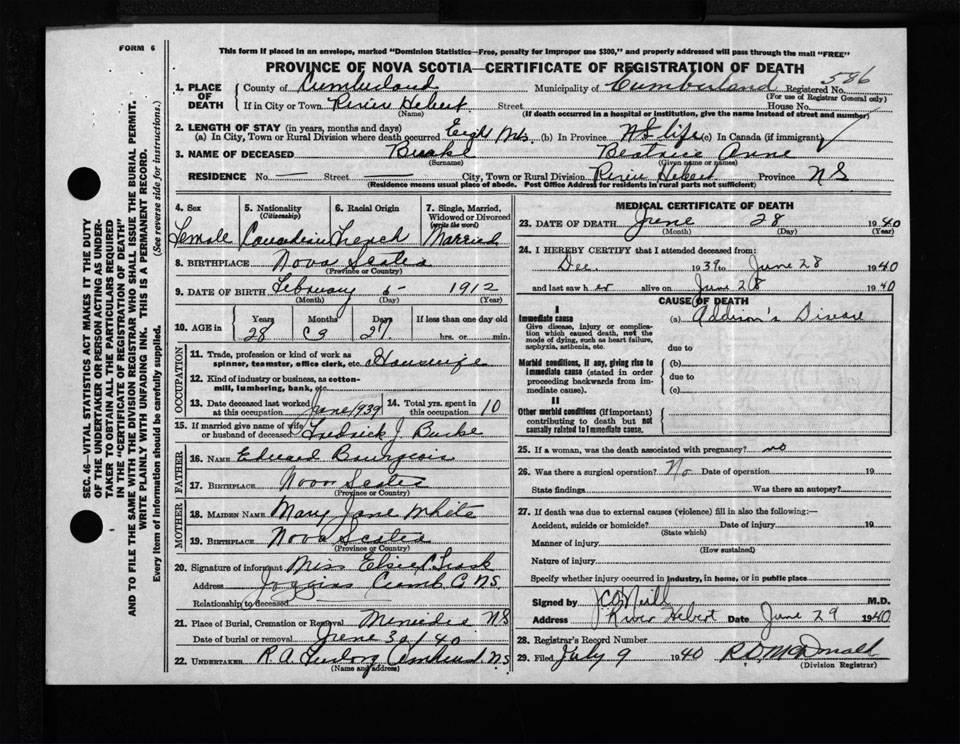 FORM 6
This form if placed in an envelope, marked "Dominion Statistics—Free, penalty for improper use $300," and properly addressed will pass through the mail "FREE"
PROVINCE OF NOVA SCOTIA—CERTIFICATE OF REGISTRATION OF DEATH
586
1. PLACE OF DEATH County of Cumberland Municipality of Cumberland Registered No.
(For use of Registrar General only)
If in City or Town River Hebert Street House No.
(Name) (If death occurred in a hospital or institution, give the name instead of street and number)
2. LENGTH OF STAY (in years, months and days)
(a) In City, Town or Rural Division where death occurred Eight Mts (b) In Province NS life (c) In Canada (if immigrant)
3. NAME OF DECEASED Burke Beatrice Anne
(Surname) (Given name or names)
RESIDENCE No. — Street — City, Town or Rural Division River Hebert Province NS
(Residence means usual place of abode. Post Office Address for residents in rural parts not sufficient)
SEC. 46—VITAL STATISTICS ACT MAKES IT THE DUTY
OF THE UNDERTAKER OR PERSON ACTING AS UNDER-
TAKER TO OBTAIN ALL THE PARTICULARS REQUIRED
IN THE "CERTIFICATE OF REGISTRATION OF DEATH"
AND TO FILE THE SAME WITH THE DIVISION REGISTRAR WHO SHALL ISSUE THE BURIAL PERMIT.
WRITE PLAINLY WITH UNFADING INK. THIS IS A PERMANENT RECORD.
Every item of information should be carefully supplied. (See reverse side for instructions.)
4. Sex 5. Nationality (Citizenship) 6. Racial Origin 7. Single, Married, Widowed or Divorced (write the word)
Female Canadian French Married
8. BIRTHPLACE Nova Scotia
(Province or Country)
9. DATE OF BIRTH February 5 1912
(Month) (Day) (Year)
10. AGE in Years Months Days If less than one day old
28 27 hrs. or min.
OCCUPATION
11. Trade, profession or kind of work as spinner, teamster, office clerk, etc. Housewife
12. Kind of industry or business, as cotton-mill, lumbering, bank, etc.
13. Date deceased last worked at this occupation June 1939 14. Total yrs. spent in this occupation 10
15. If married give name of wife or husband of deceased Fredrick J. Burke
FATHER
16. NAME Edward Bourgeois
17. BIRTHPLACE Nova Scotia
(Province or Country)
MOTHER
18. MAIDEN NAME Mary Jane White
19. BIRTHPLACE Nova Scotia
(Province or Country)
20. Signature of informant Miss Elsie
Address Joggins Cumb. C. NS.
Relationship to deceased
21. Place of Burial, Cremation or Removal Minudie NS
Date of burial or removal June 30/40
22. UNDERTAKER R.A. Amherst NS
(Name and address)
MEDICAL CERTIFICATE OF DEATH
23. DATE OF DEATH June 28 1940
(Month) (Day) (Year)
24. I HEREBY CERTIFY that I attended deceased from:
Dec. 1939 to June 28 1940
and last saw her alive on June 28 1940
CAUSE OF DEATH
I
Immediate cause (a) Addison's Disease
Give disease, injury or complication which caused death, not the mode of dying, such as heart failure, asphyxia, asthenia, etc.
due to
Morbid conditions, if any, giving rise to immediate cause (stated in order proceeding backwards from immediate cause).
(b)
due to
(c)
II
Other morbid conditions (if important) contributing to death but not causally related to immediate cause.
25. If a woman, was the death associated with pregnancy? no
26. Was there a surgical operation? No Date of operation 19
State findings Was there an autopsy?
27. If death was due to external causes (violence) fill in also the following:—
Accident, suicide or homicide? Date of injury 19
(State which)
Manner of injury
(How sustained)
Nature of injury
Specify whether injury occurred in industry, in home, or in public place
Signed by M.D.
Address River Hebert Date June 29 1940
28. Registrar's Record Number
29. Filed July 9 1940 R.D. McDonald
(Division Registrar)